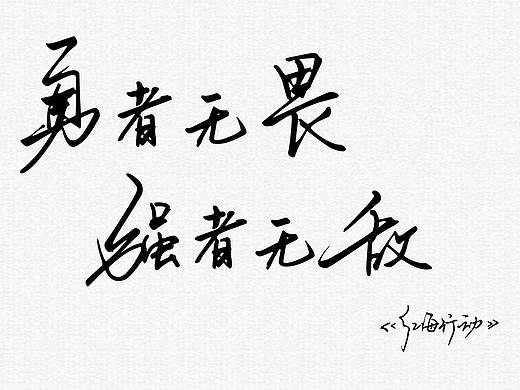 勇者无畏
强者无敌
《红海行动》